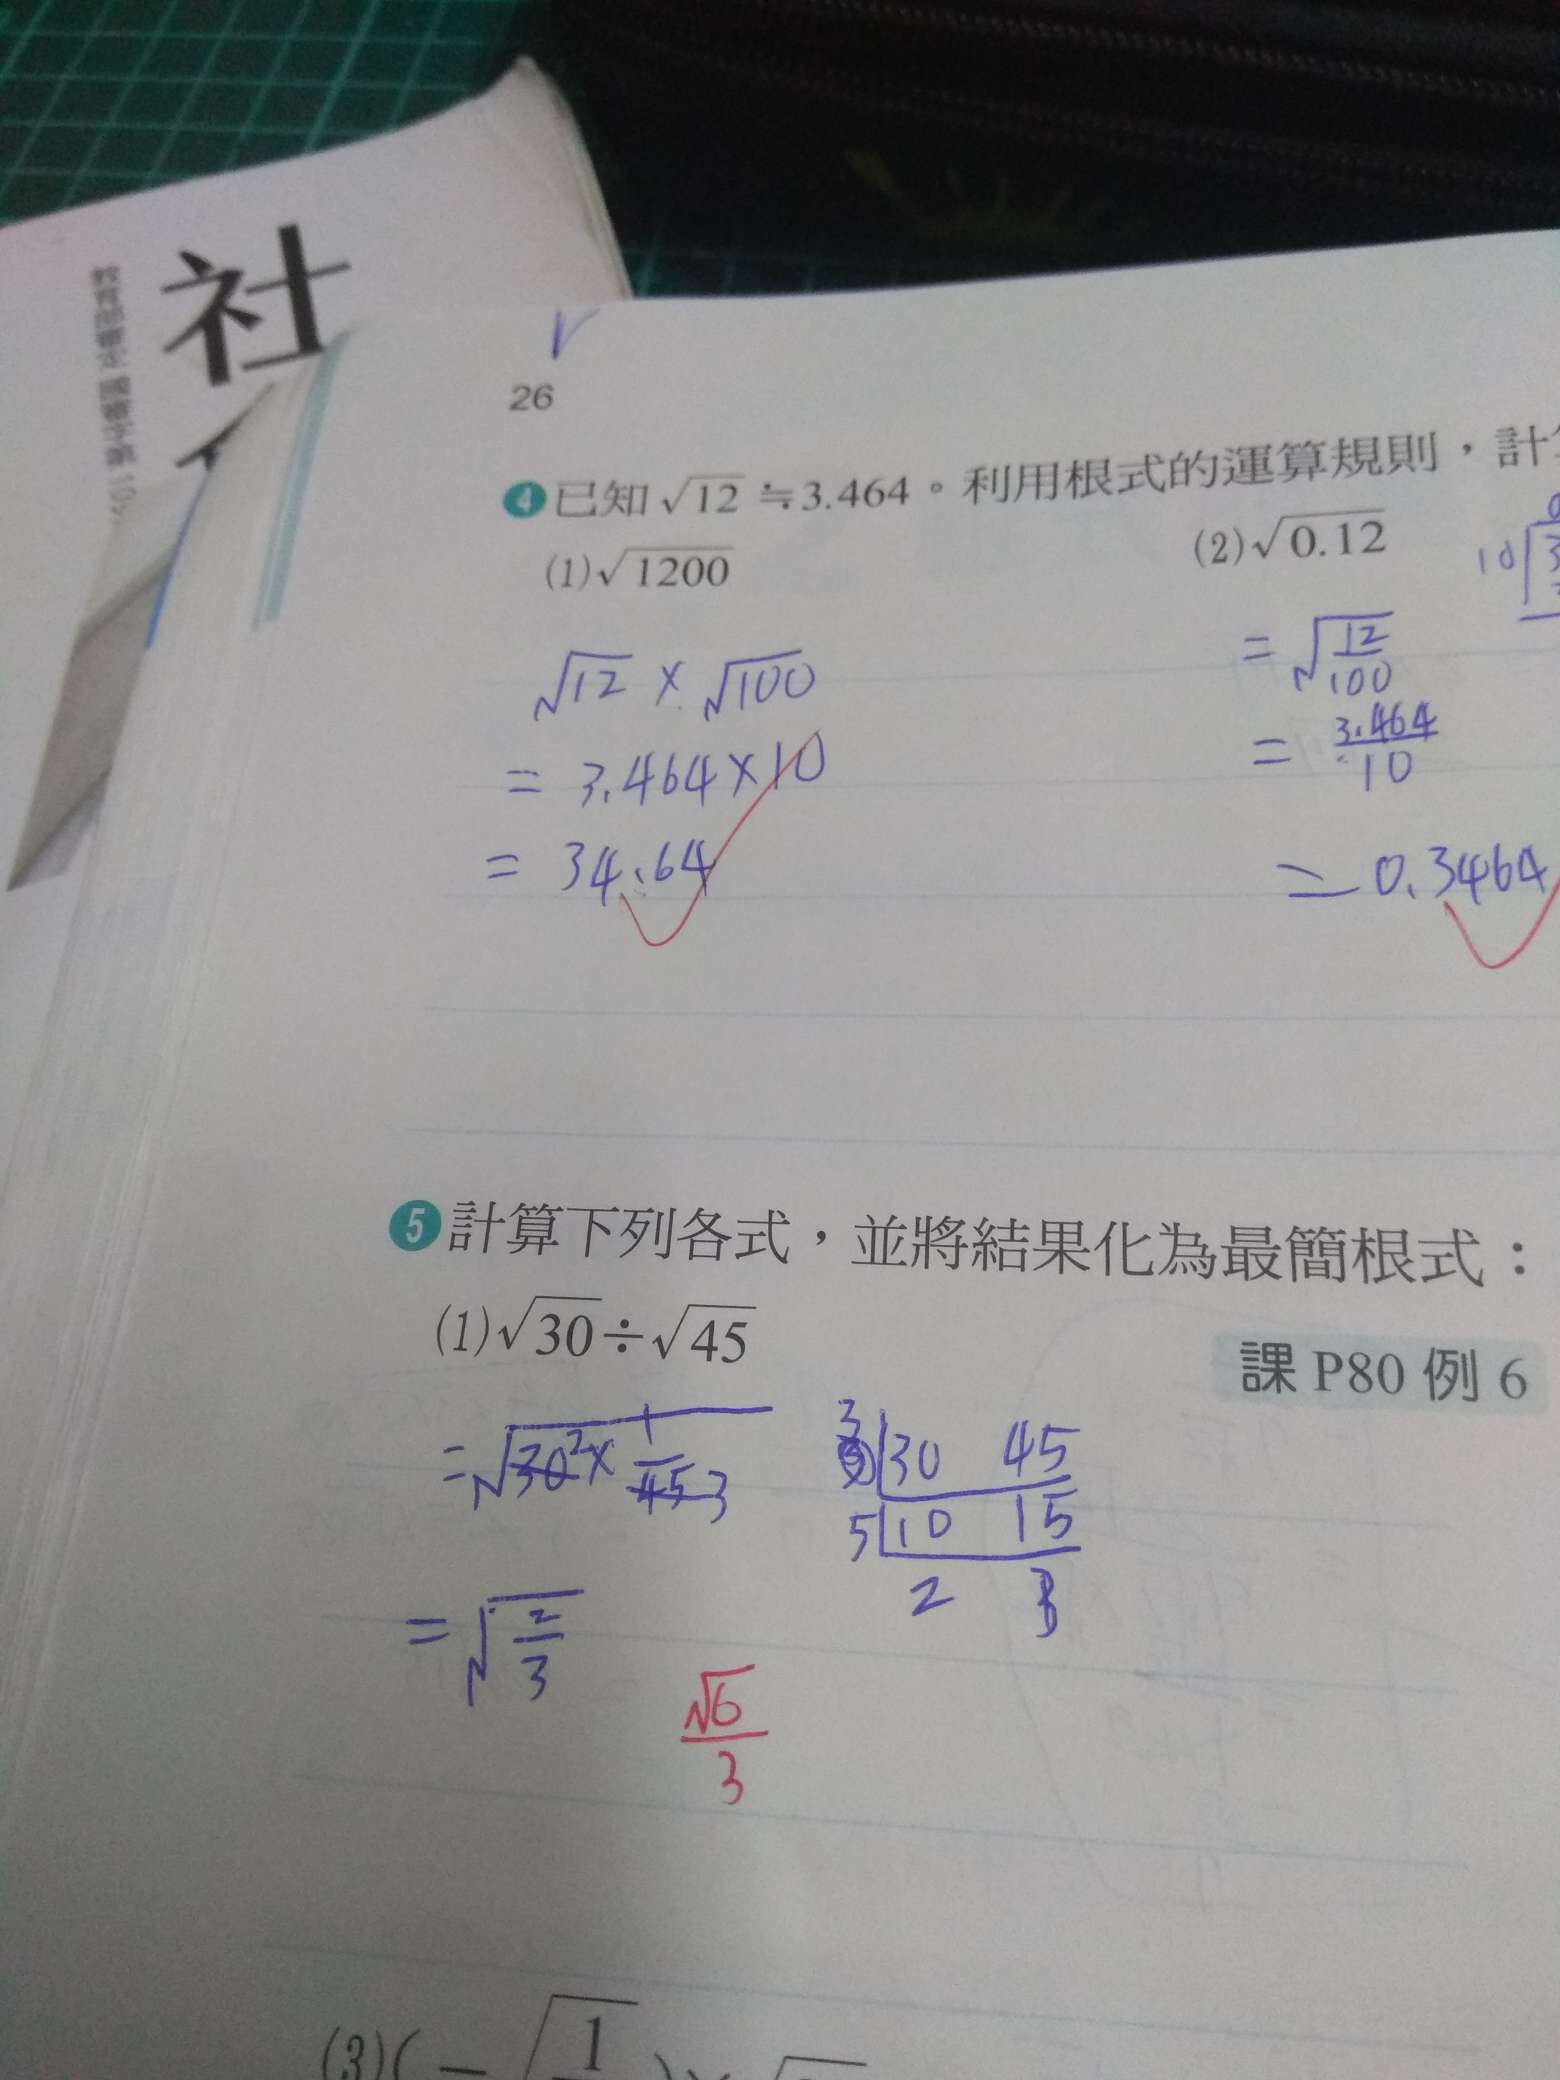 社
26
4 已知√12≒3.464。利用根式的運算規則,計
(1)√1200
(2)√0.12
√12 × √100
= 3.464×10
= 34.64
= √(12/100)
= 3.464/10
= 0.3464
10
5 計算下列各式,並將結果化為最簡根式:
(1)√30÷√45
課 P80 例 6
= √(30² × 1/45 3)
3 30 45
5 10 15
2 3
= √(2/3)
√6/3
(3)(-√1